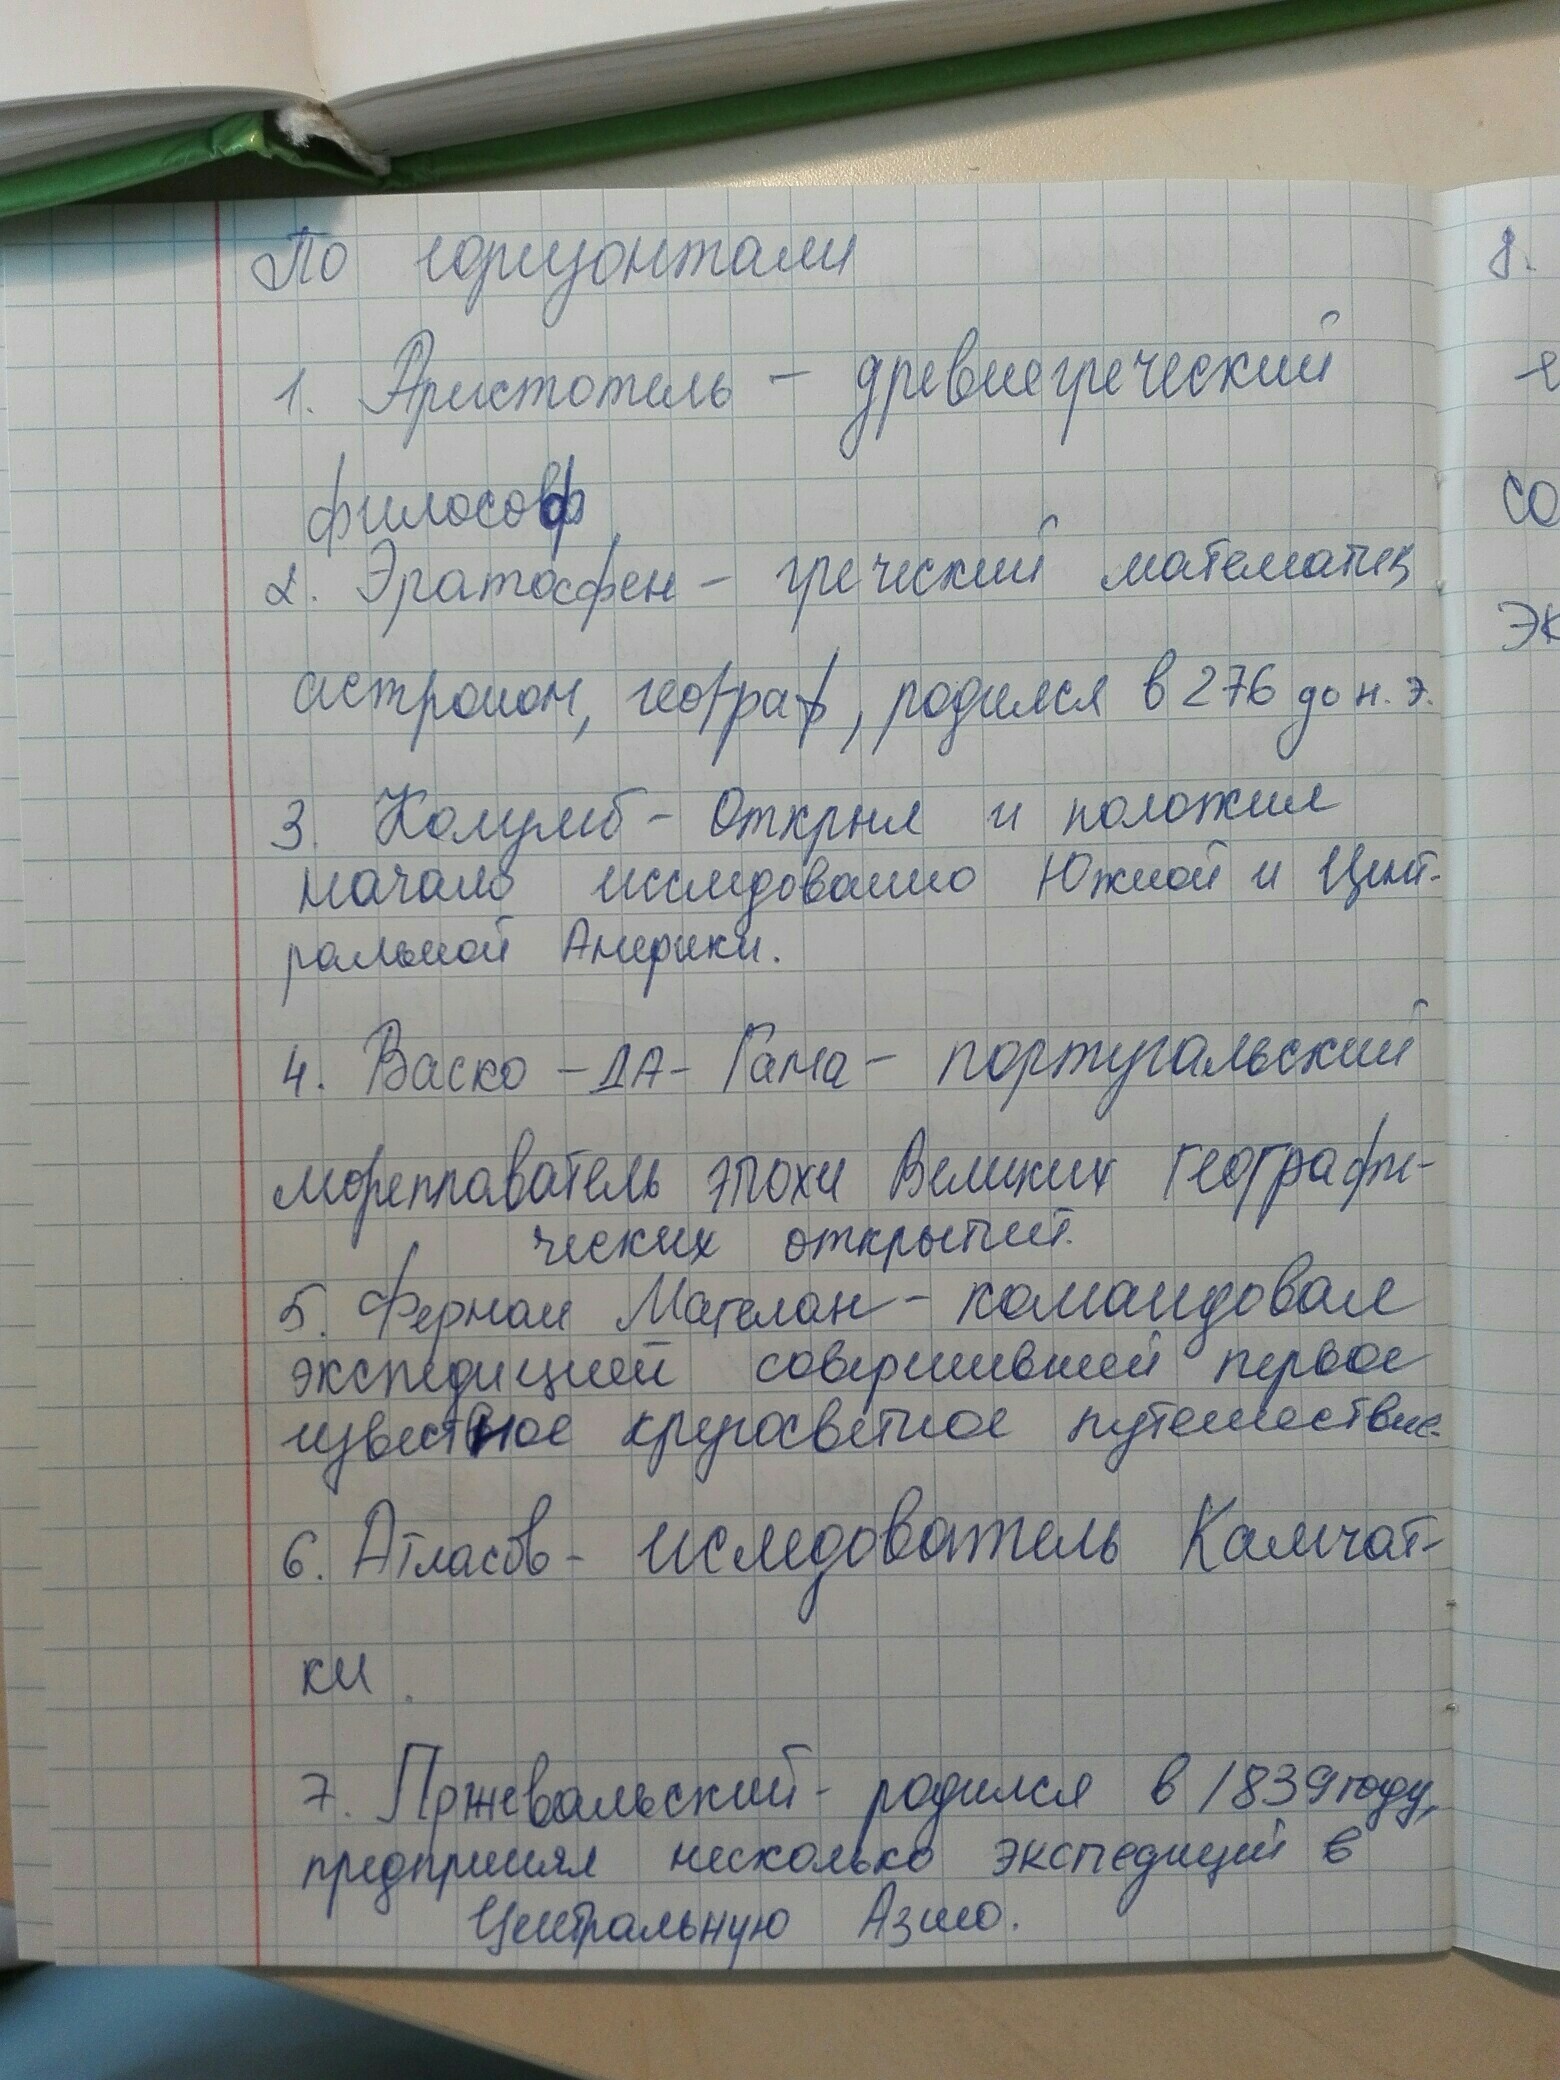 По горизонтали
1. Аристотель - древнегреческий
философ
2. Эратосфен - греческий математик
астроном, географ, родился в 276 до н. э.
3. Колумб - Открыл и положил
начало исследованию Южной и Цент-
ральной Америки.
4. Васко - ДА - Гама - португальский
мореплаватель эпохи Великих географи-
ческих открытий.
5. Фернан Магелан - командовал
экспедицией совершившей первое
известное кругосветное путешествие.
6. Атласов - иследователь Камчат-
ки.
7. Пржевальский - родился в 1839 году,
предпринял несколько экспедиций в
Центральную Азию.
8.
со
эк